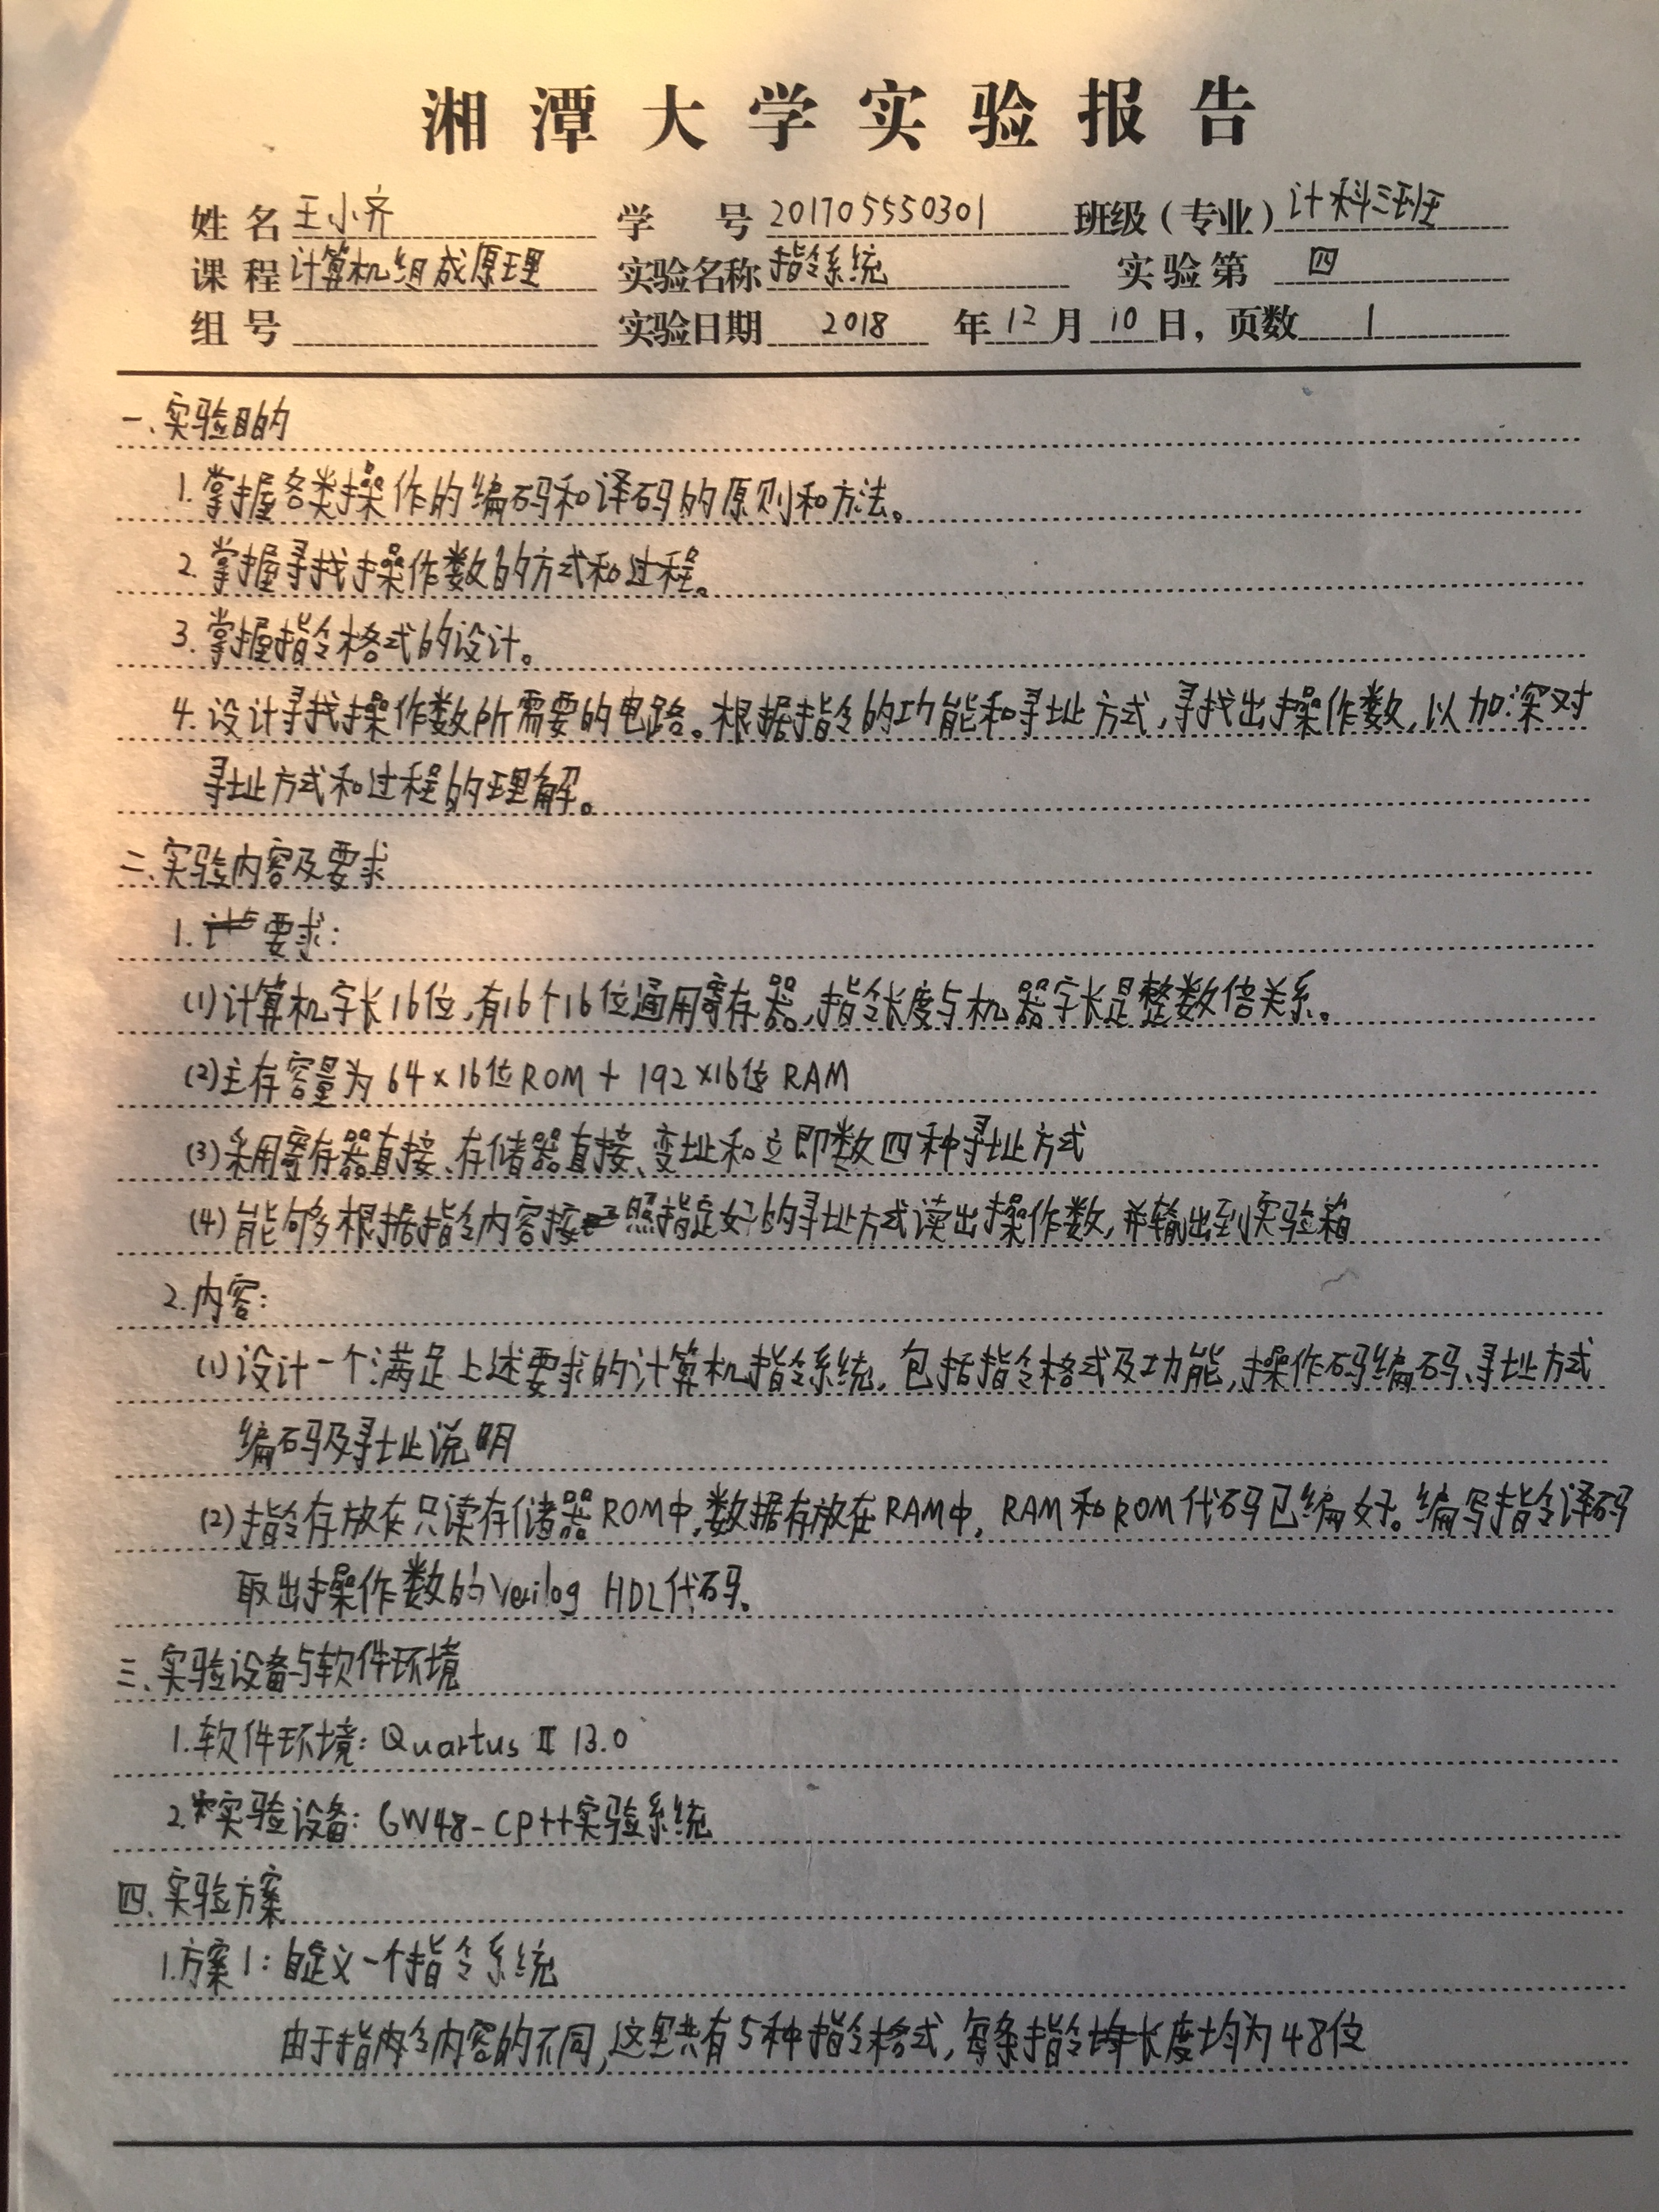 湘潭大学实验报告
姓名 王小齐 学号 201705550301 班级（专业） 计科三班
课程 计算机组成原理 实验名称 指令系统 实验第 四
组号 实验日期 2018 年 12 月 10 日，页数 1
一、实验目的
1. 掌握各类操作的编码和译码的原则和方法。
2. 掌握寻找操作数的方式和过程。
3. 掌握指令格式的设计。
4. 设计寻找操作数所需要的电路。根据指令的功能和寻址方式，寻找出操作数，以加深对
寻址方式和过程的理解。
二、实验内容及要求
1. 要求：
(1) 计算机字长16位，有16个16位通用寄存器，指令长度与机器字长是整数倍关系。
(2) 主存容量为64×16位ROM + 192×16位RAM
(3) 采用寄存器直接、存储器直接、变址和立即数四种寻址方式
(4) 能够根据指令内容按照指定好的寻址方式读出操作数，并输出到实验箱
2. 内容：
(1) 设计一个满足上述要求的计算机指令系统，包括指令格式及功能，操作码编码、寻址方式
编码及寻址说明
(2) 指令存放在只读存储器ROM中，数据存放在RAM中，RAM和ROM代码已编好。编写指令译码
取出操作数的Verilog HDL代码。
三、实验设备与软件环境
1. 软件环境：Quartus Ⅱ 13.0
2. 实验设备：GW48-CP++实验系统
四、实验方案
1. 方案1：自定义一个指令系统
由于指令内容的不同，这里共有5种指令格式，每条指令长度均为48位